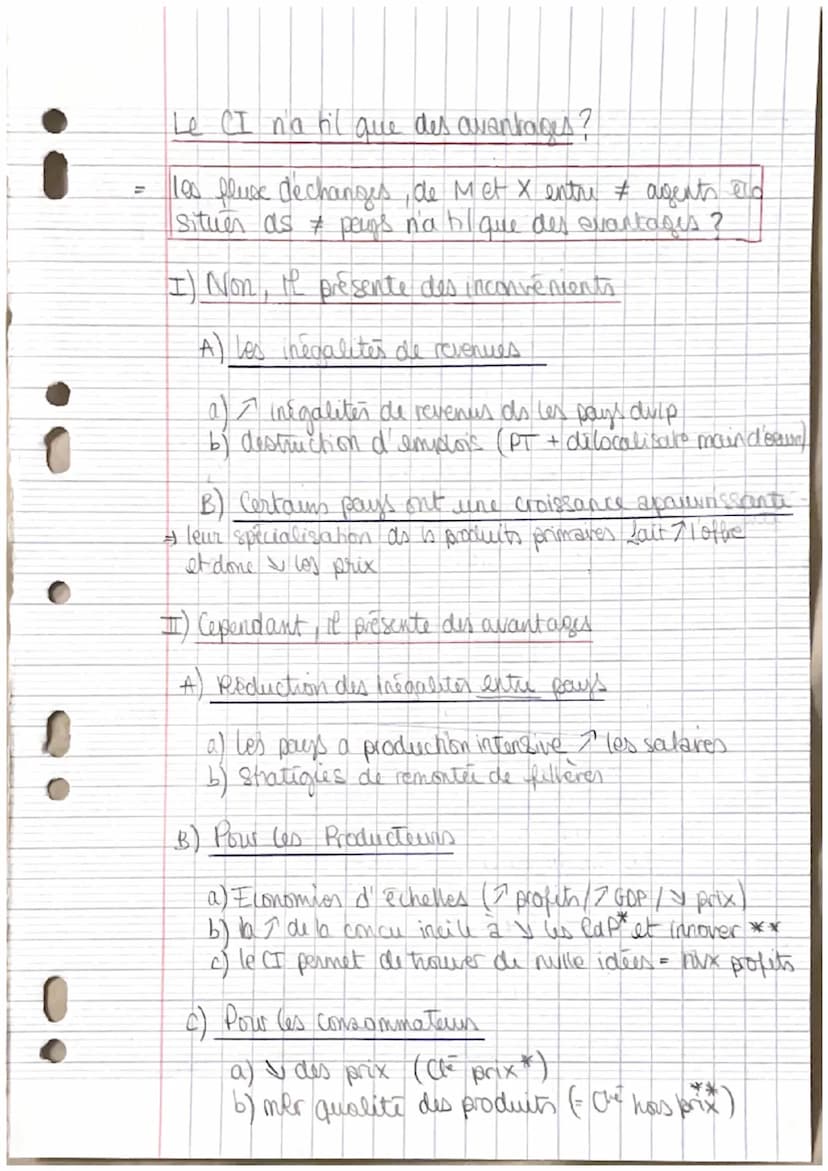 Le CI n'a til que des avantages ?
= les fluxe d'échanges, de M et X entre ≠ agents éco
situés ds ≠ pays n'a til que des avantages ?
I) Non, il présente des inconvénients
A) Les inégalités de revenues
a) ↗ inégalités de revenus ds les pays dvlp
b) destruction d'emplois (PT + délocalisato maind'œuvre)
B) Certains pays ont une croissance apauvrissante
⇒ leur spécialisation ds ls produits primaires fait ↗ l'offre
et donc ↘ les prix
II) Cependant, il présente des avantages
A) Réduction des inégalités entre pays
a) Les pays a production intensive ↗ les salaires
b) Stratégies de remontée de fillières
B) Pour les Producteurs
a) Economies d'échelles (↗ profits / ↗ GDP / ↘ prix)
b) la ↗ de la concu incite à ↘ les CdP* et innover **
c) le CI permet de trouver de nvlle idées = nvx profits
C) Pour les consommateurs
a) ↘ des prix (Cté prix*)
b) mlr qualité des produits (= Cté hors prix**)